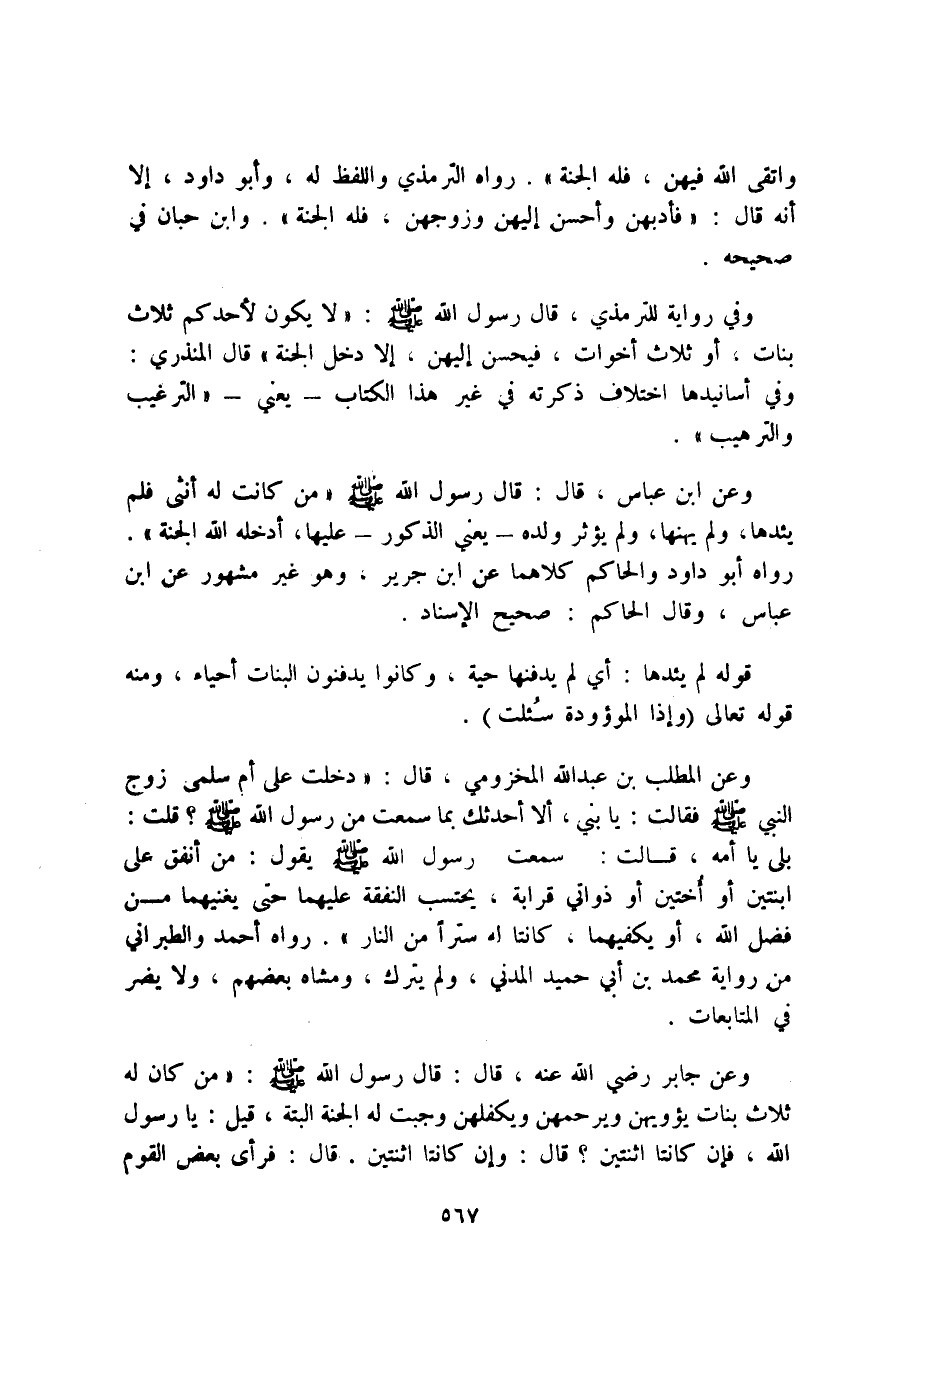 واتقى الله فيهن ، فله الجنة » . رواه الترمذي واللفظ له ، وأبو داود ، إلا
أنه قال : « فأدبهن وأحسن إليهن وزوجهن ، فله الجنة » . وابن حبان في
صحيحه .
وفي رواية للترمذي ، قال رسول الله ﷺ : « لا يكون لأحدكم ثلاث
بنات ، أو ثلاث أخوات ، فيحسن إليهن ، إلا دخل الجنة » قال المنذري :
وفي أسانيدها اختلاف ذكرته في غير هذا الكتاب – يعني – « الترغيب
والترهيب » .
وعن ابن عباس ، قال : قال رسول الله ﷺ « من كانت له أنثى فلم
يئدها، ولم يهنها، ولم يؤثر ولده – يعني الذكور – عليها، أدخله الله الجنة » .
رواه أبو داود والحاكم كلاهما عن ابن جرير ، وهو غير مشهور عن ابن
عباس ، وقال الحاكم : صحيح الإسناد .
قوله لم يئدها : أي لم يدفنها حية ، وكانوا يدفنون البنات أحياء ، ومنه
قوله تعالى (وإذا الموؤودة سُئلت) .
وعن المطلب بن عبدالله المخزومي ، قال : « دخلت على أم سلمى زوج
النبي ﷺ فقالت : يا بني ، ألا أحدثك بما سمعت من رسول الله ﷺ ؟ قلت :
بلى يا أمه ، قــالت : سمعت رسول الله ﷺ يقول : من أنفق على
ابنتين أو أُختين أو ذواتي قرابة ، يحتسب النفقة عليهما حتى يغنيهما مــن
فضل الله ، أو يكفيهما ، كانتا له ستراً من النار » . رواه أحمد والطبراني
من رواية محمد بن أبي حميد المدني ، ولم يترك ، ومشاه بعضهم ، ولا يضر
في المتابعات .
وعن جابر رضي الله عنه ، قال : قال رسول الله ﷺ : « من كان له
ثلاث بنات يؤويهن ويرحمهن ويكفلهن وجبت له الجنة البتة ، قيل : يا رسول
الله ، فإن كانتا اثنتين ؟ قال : وإن كانتا اثنتين . قال : فرأى بعض القوم
٥٦٧